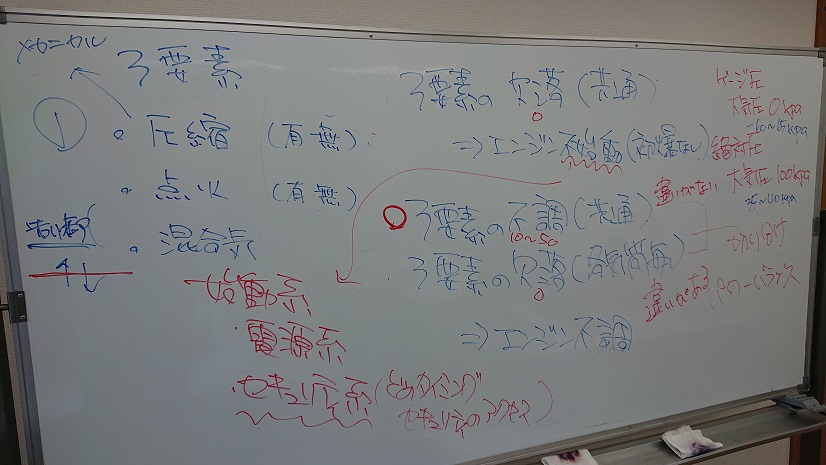 メカニカル
3要素
・圧縮 (有無)
・点火 (有無)
・混合気
始動系
電源系
セキュリティ系(どのタイミング
セキュリティのアクセス)
3要素の欠落(共通)
0
⇒エンジン不始動(初爆ない)
3要素の不調(共通)
10~50
3要素の欠落(各気筒毎)
0
⇒エンジン不調
ゲージ圧
大気圧 0kpa
絶対圧
大気圧 100kpa
違いがない
違いがある
パワーバランス